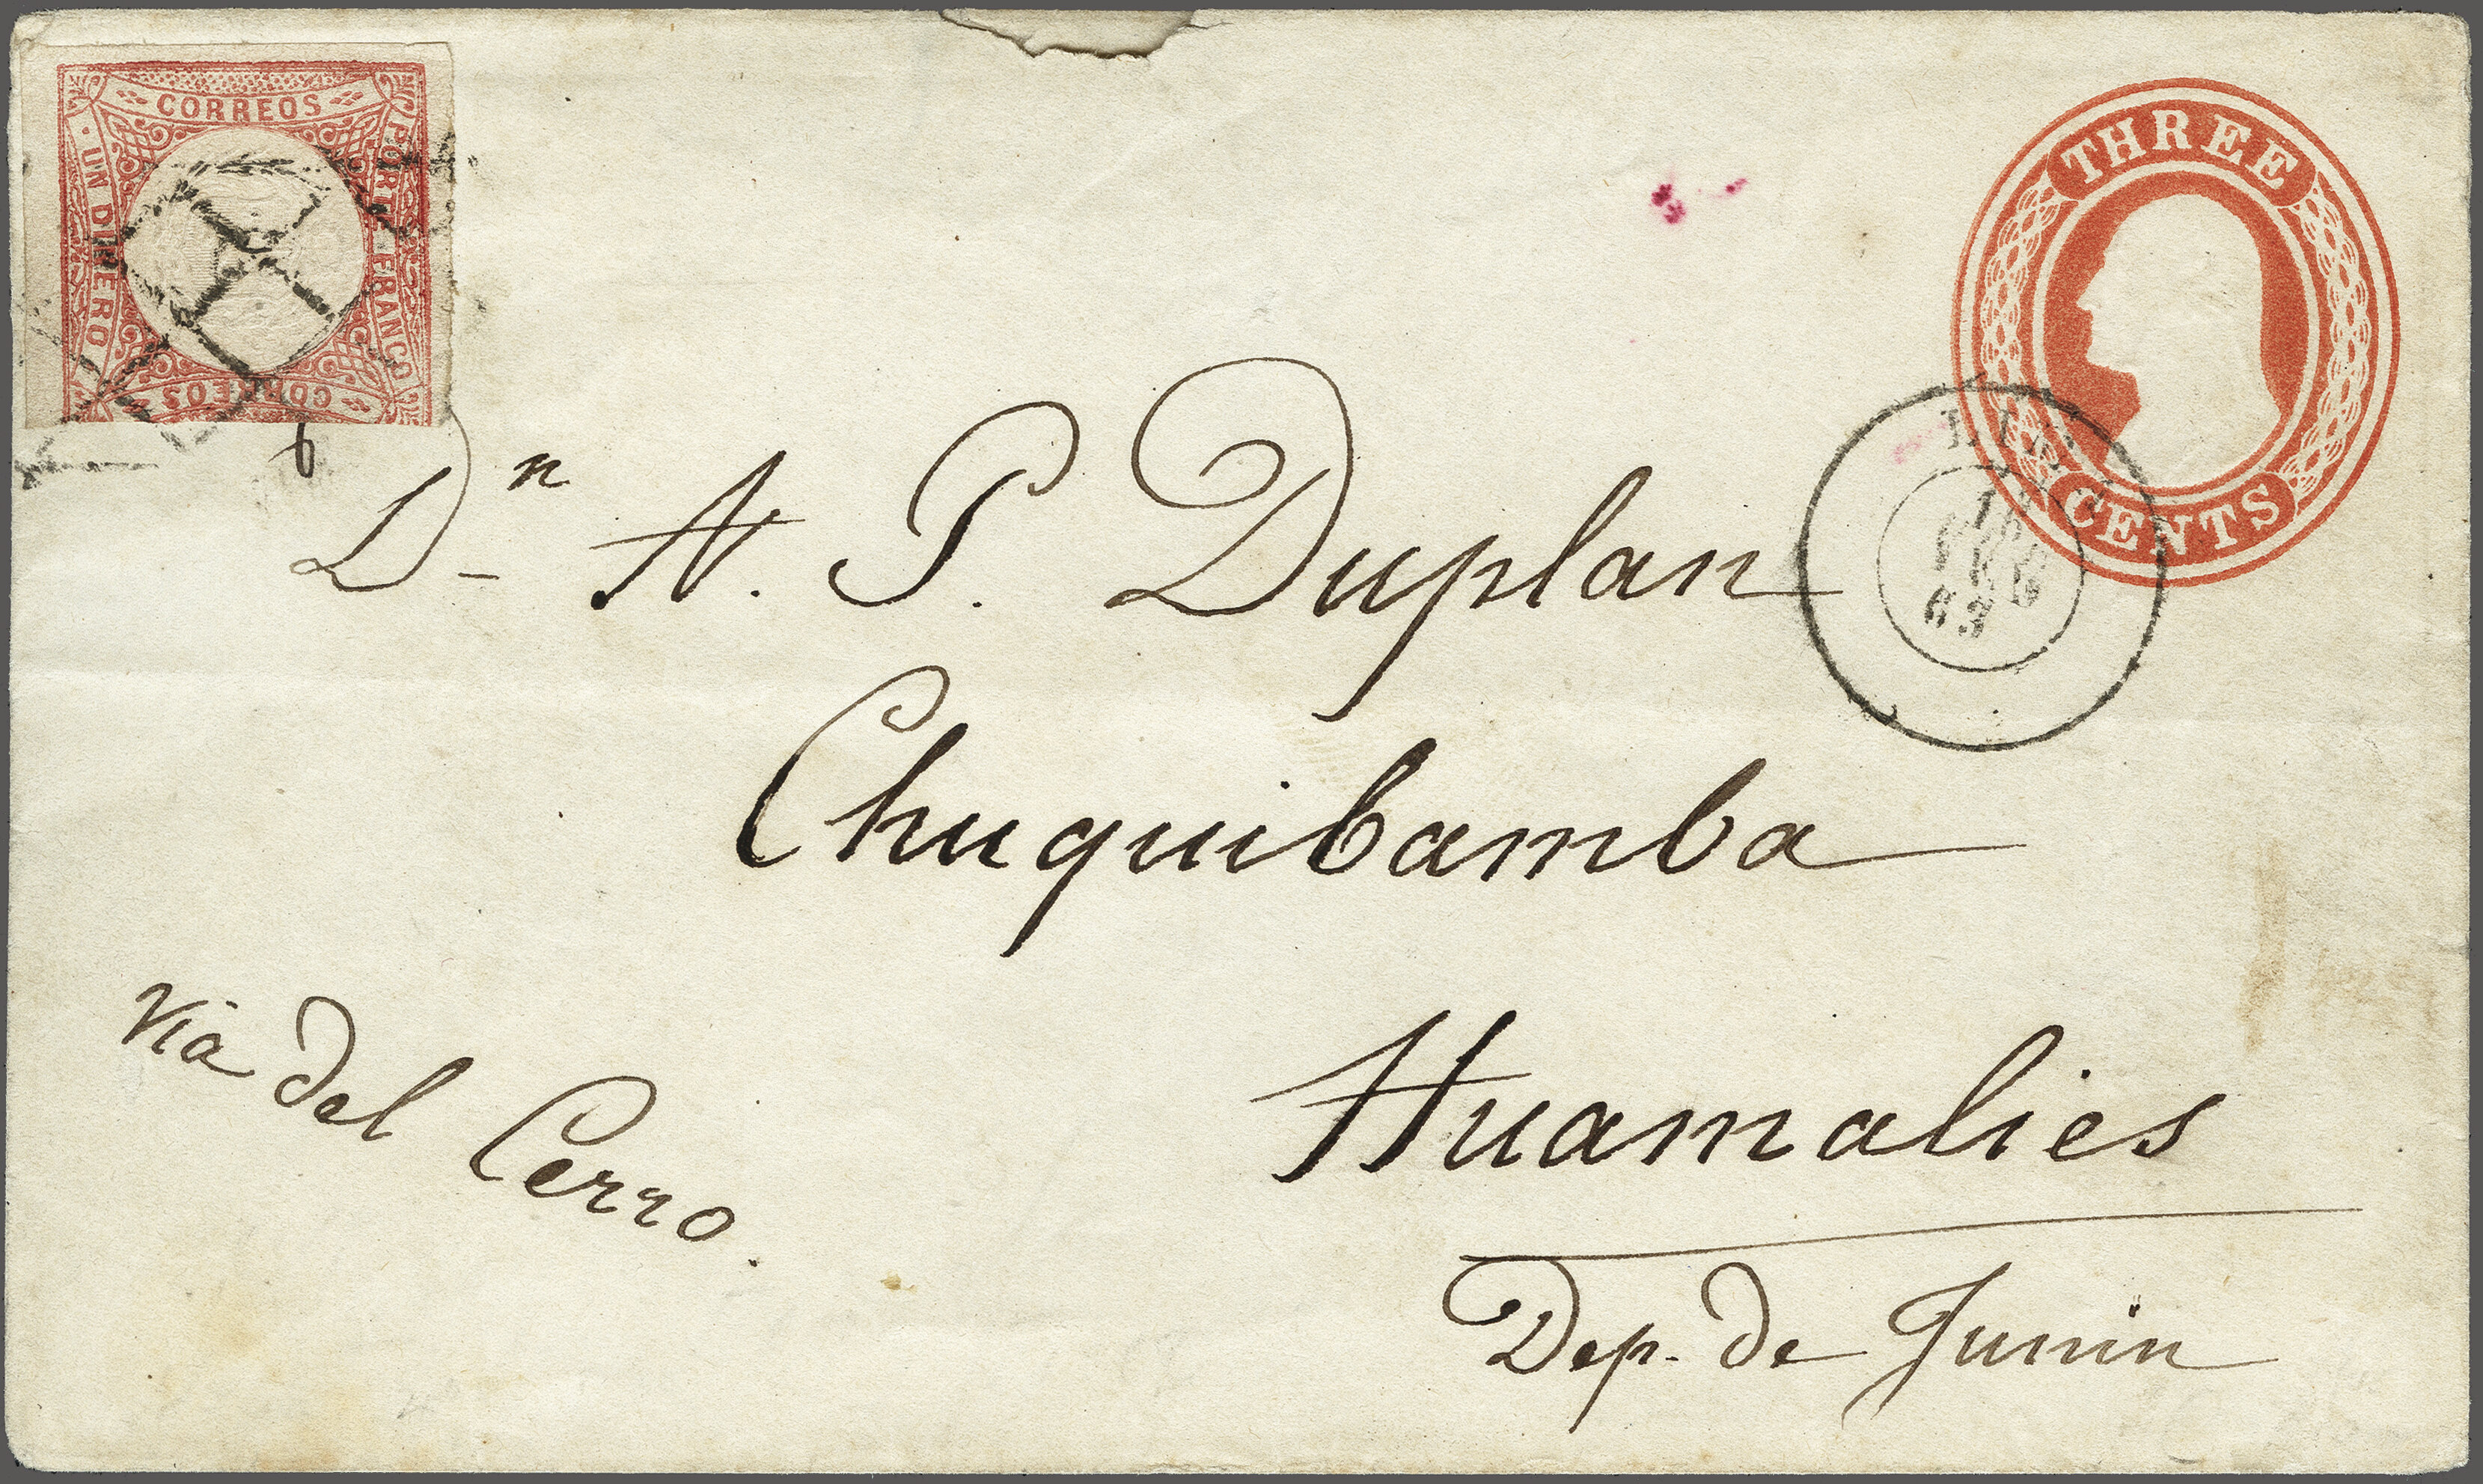 CORREOS
UN DINERO
PORTE FRANCO
CORREOS
THREE
CENTS
63
Dn A. P. Duplan
Chuquibamba
Huamalies
Dep. de Junin
via del Cerro.